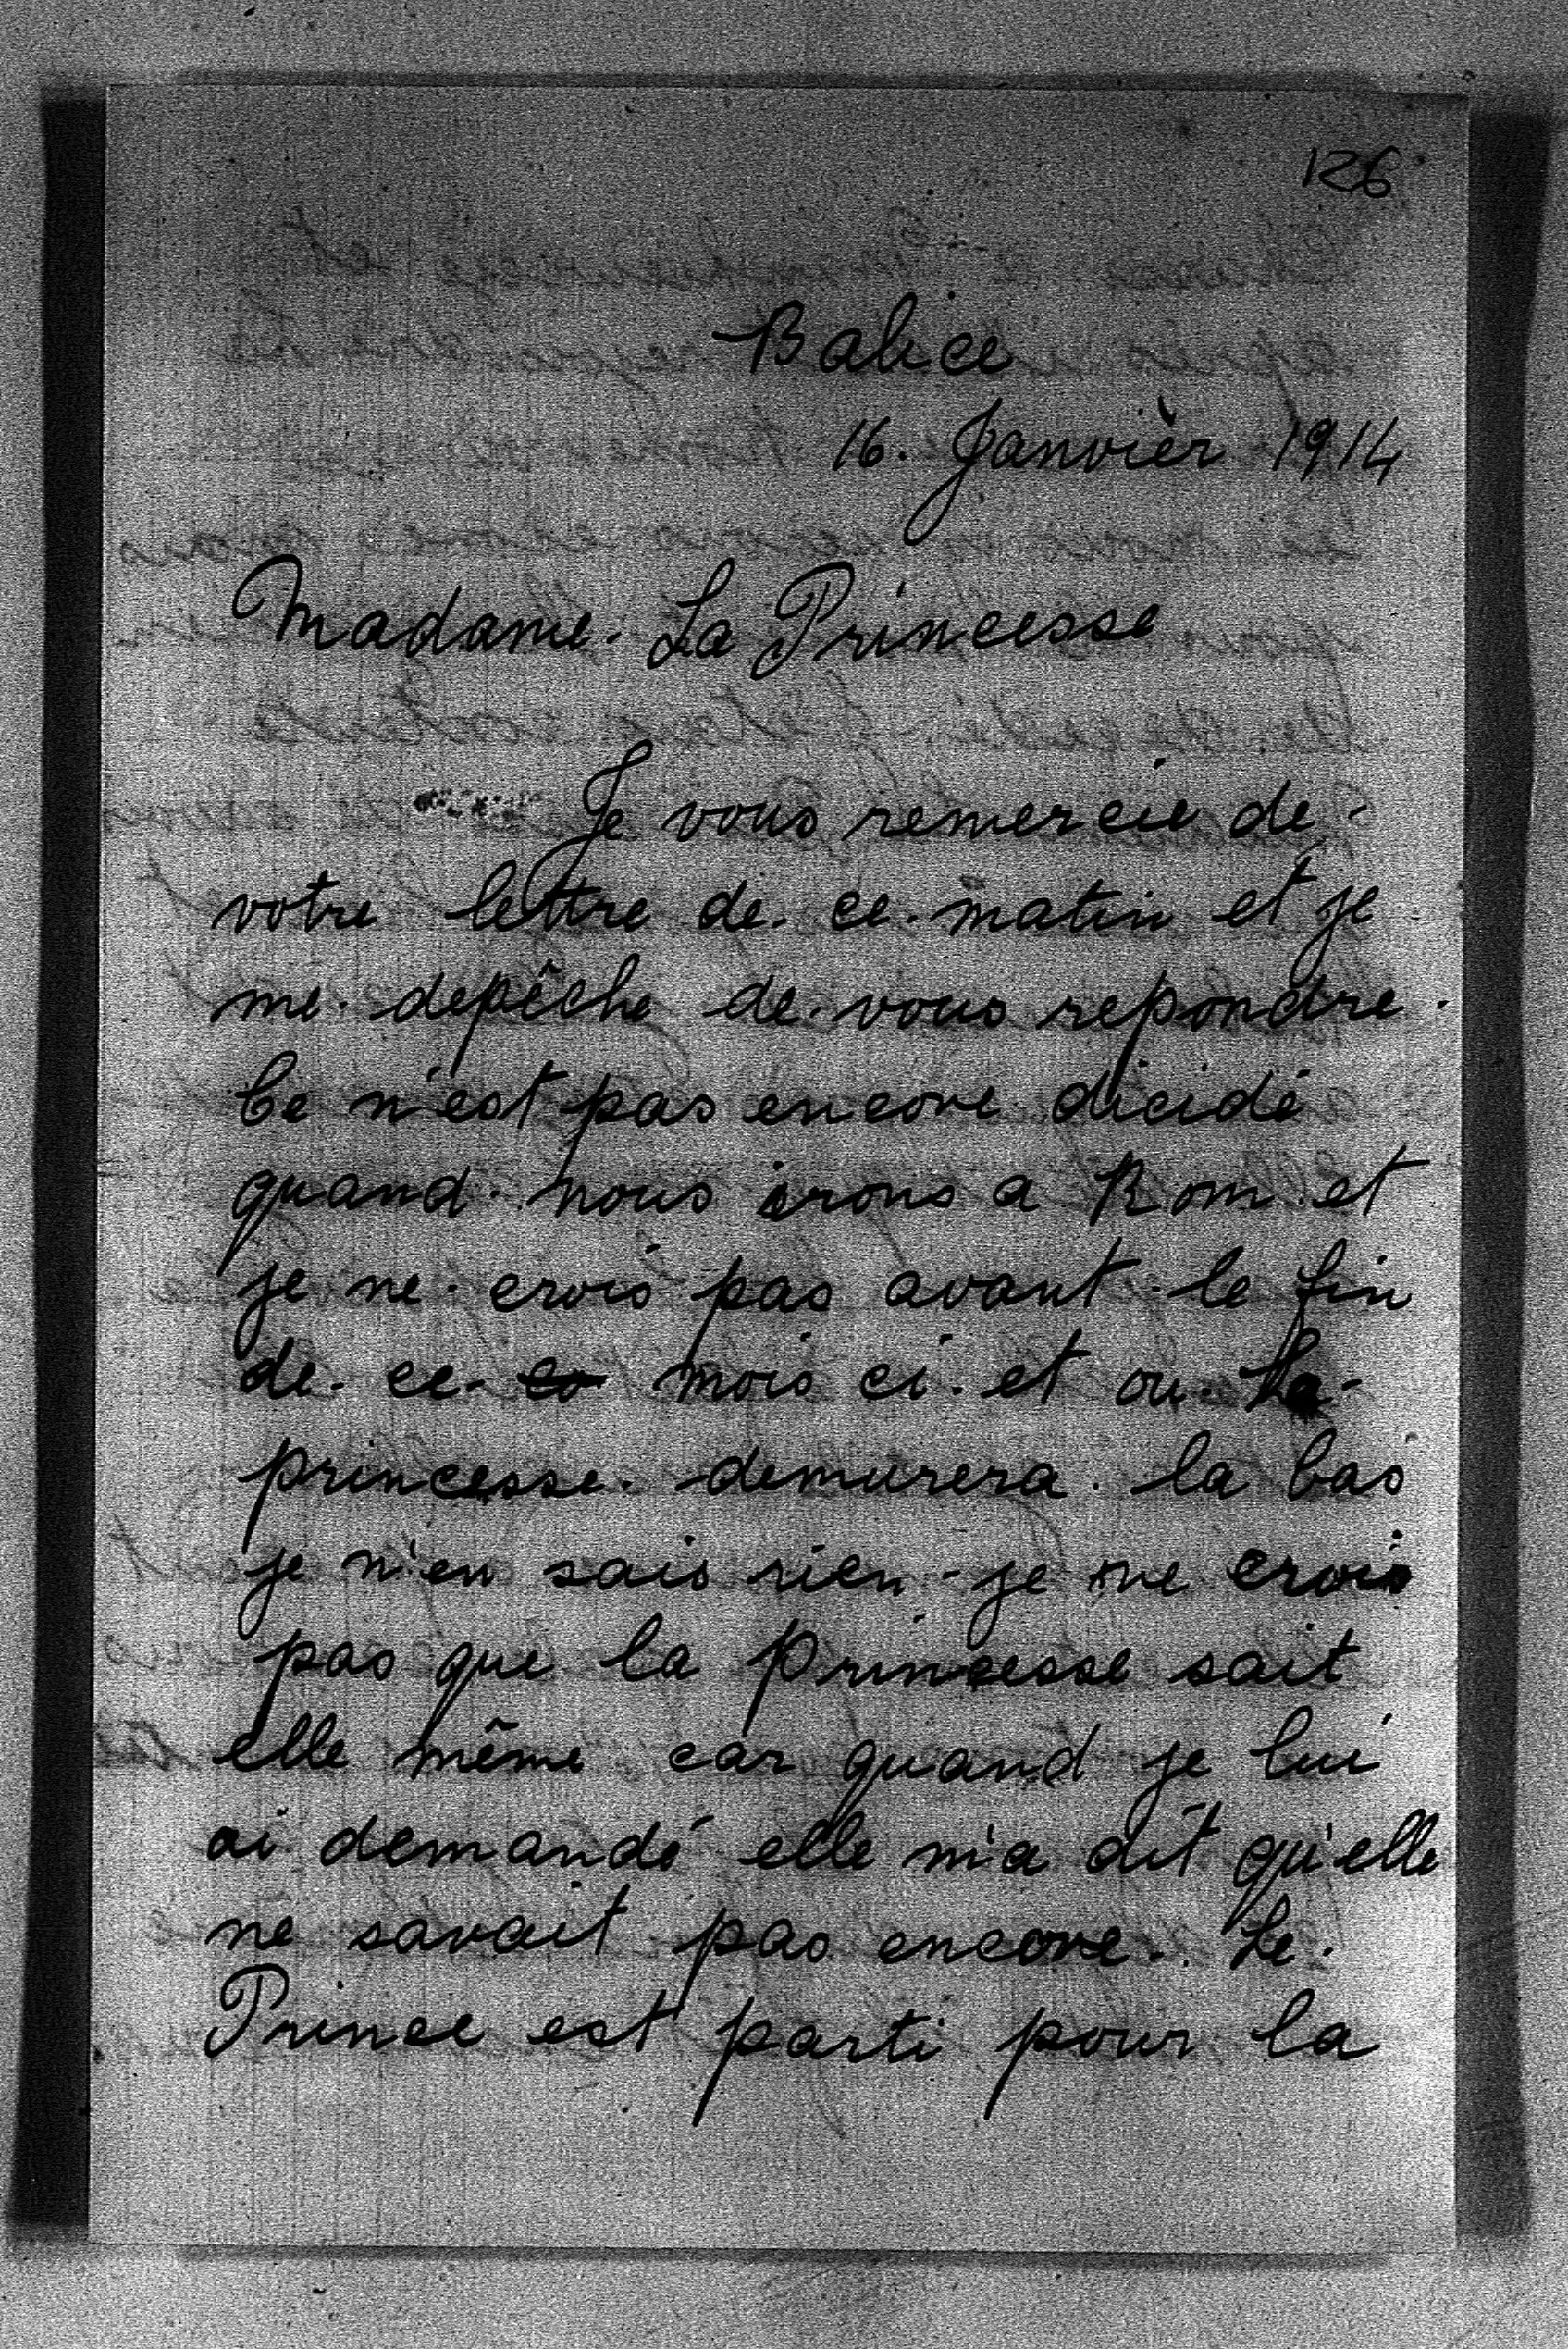 126
Balice
16. Janvièr 1914
Madame. La Princesse
Je vous remercie de.
votre lettre de. ce. matin et je
me. depêche de. vous repondre.
Ce n'est pas encore dicidé
quand. nous irons a Rom et
je ne. crois pas avant le fin
de. ce. mois ci. et ou. La
princesse. demurera. la bas
je n'en sais rien - je ne crois
pas que la Princesse sait
elle même car quand je lui
ai demandé elle m'a dit qu'elle
ne savait pas encore. Le.
Prince est parti pour la